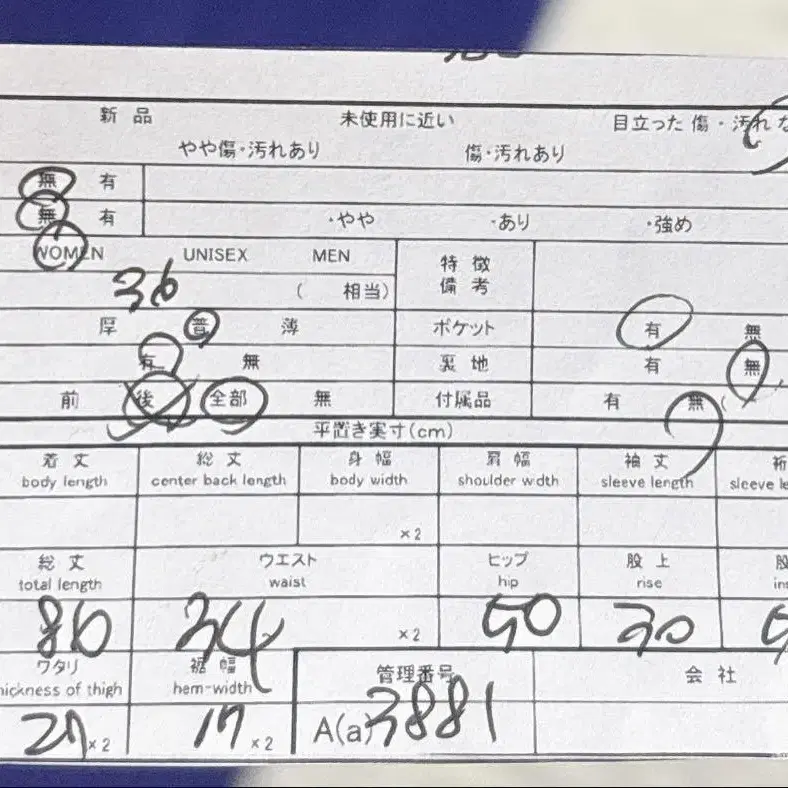 新品 未使用に近い 目立った傷・汚れな
やや傷・汚れあり 傷・汚れあり
無 有
無 有 ・やや ・あり ・強め
WOMEN UNISEX MEN 特徴
備考
36 ( 相当)
厚 普 薄 ポケット 有 無
有 無 裏地 有 無
前 後 全部 無 付属品 有 無 (
平置き実寸(cm)
着丈 総丈 身幅 肩幅 袖丈 裄
body length center back length body width shoulder wdth sleeve length sleeve le
×2
総丈 ウエスト ヒップ 股上 股
total length waist hip rise in
86 34 ×2 50 30
ワタリ 裾幅 管理番号 会社
hickness of thigh hem-width
27 ×2 17 ×2 A(a) 3881